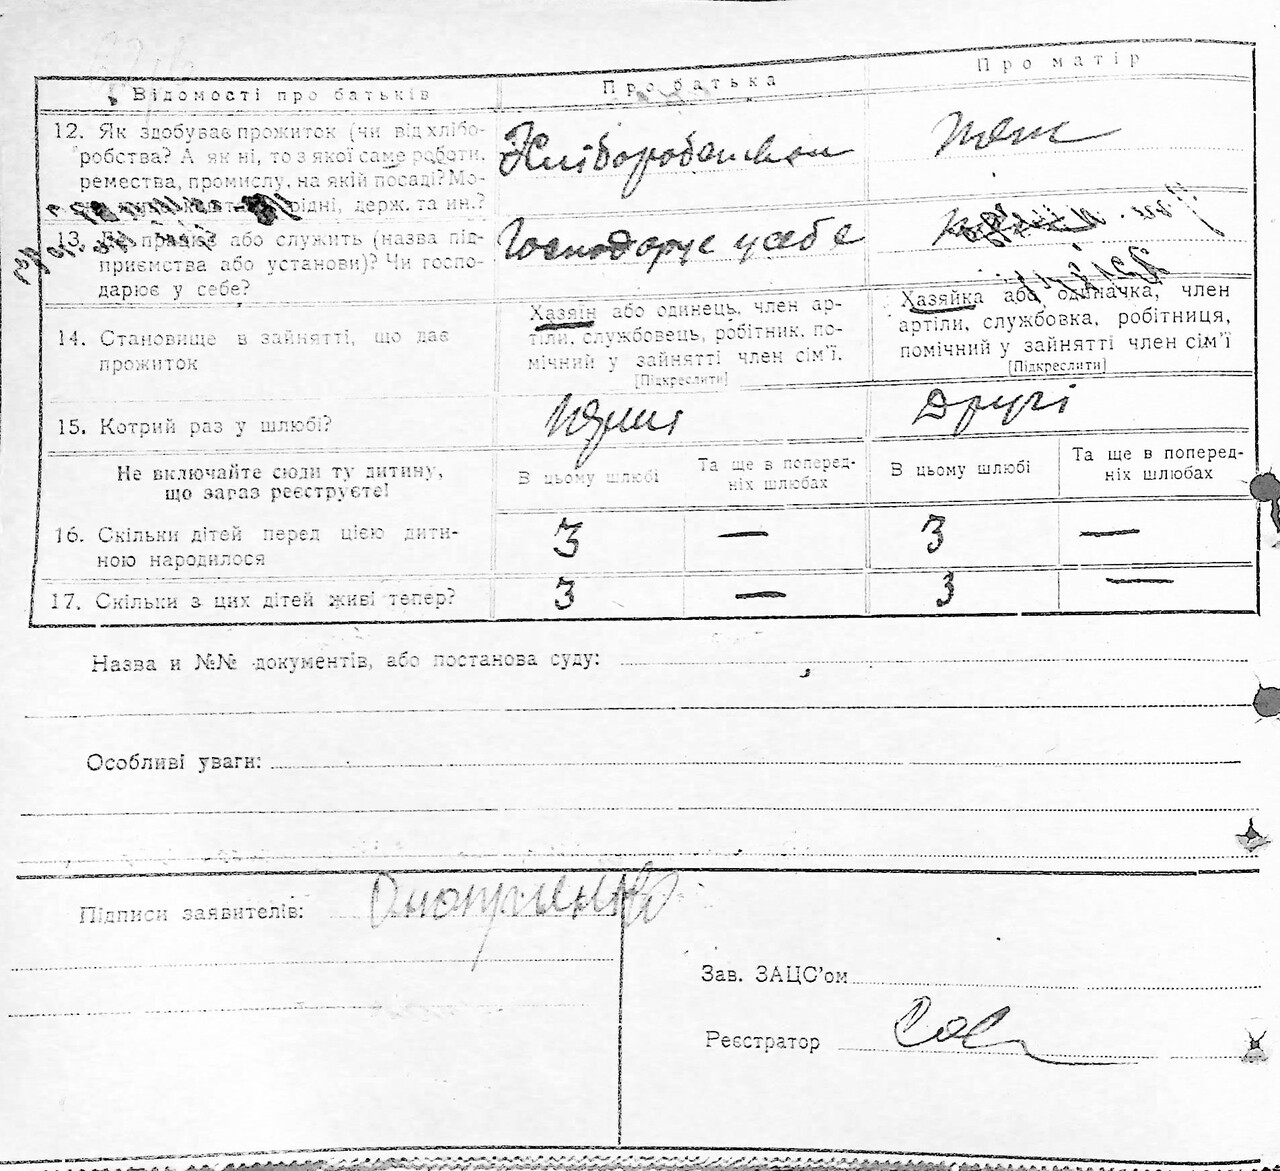 Відомості про батьків
Про батька
Про матір
12. Як здобуває прожиток (чи від хлібо-
робства? А як ні, то з якої саме роботи,
ремества, промислу, на якій посаді? Мо-
рідні, держ. та ин.?
Хліборобством
теж
13. Де працює або служить (назва під-
приємства або установи)? Чи госпо-
дарює у себе?
Господарує у себе
14. Становище в зайнятті, що дає
прожиток
Хазяїн або одинець, член ар-
тіли, службовець, робітник, по-
мічний у зайнятті член сім'ї.
[Підкреслити]
Хазяйка або одиначка, член
артіли, службовка, робітниця,
помічний у зайнятті член сім'ї
[Підкреслити]
15. Котрий раз у шлюбі?
Другі
Не включайте сюди ту дитину,
що зараз реєструєте!
В цьому шлюбі
Та ще в поперед-
ніх шлюбах
В цьому шлюбі
Та ще в поперед-
ніх шлюбах
16. Скільки дітей перед цією дити-
ною народилося
3 — 3 —
17. Скільки з цих дітей живі тепер?
3 — 3 —
Назва и №№ документів, або постанова суду:
Особливі уваги:
Підписи заявителів:
Зав. ЗАЦС'ом
Реєстратор